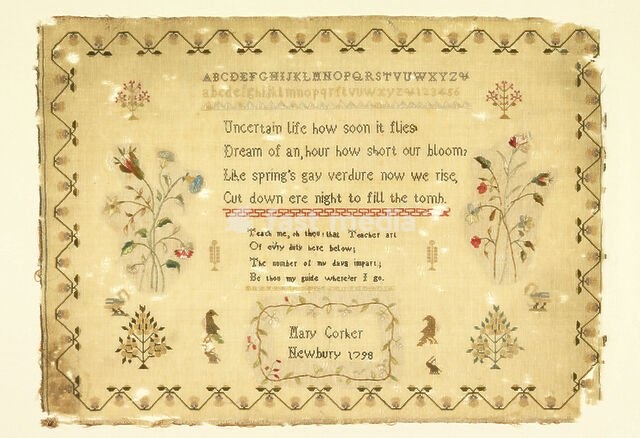 ABCDEFGHIJKLMNOPQRSTVUWXYZ&
abcdefghijklmnopqrſtvuwxyz&123456
Uncertain life how soon it flies
Dream of an, hour how short our bloom;
Like spring's gay verdure now we rise,
Cut down ere night to fill the tomb.
Teach me, oh thou that Teacher art
Of ev'ry duty here below;
The number of my days impart;
Be thou my guide where'er I go.
Mary Corker
Newbury 1798